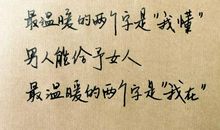 最温暖的两个字是"我懂"
男人能给予女人
最温暖的两个字是"我在"